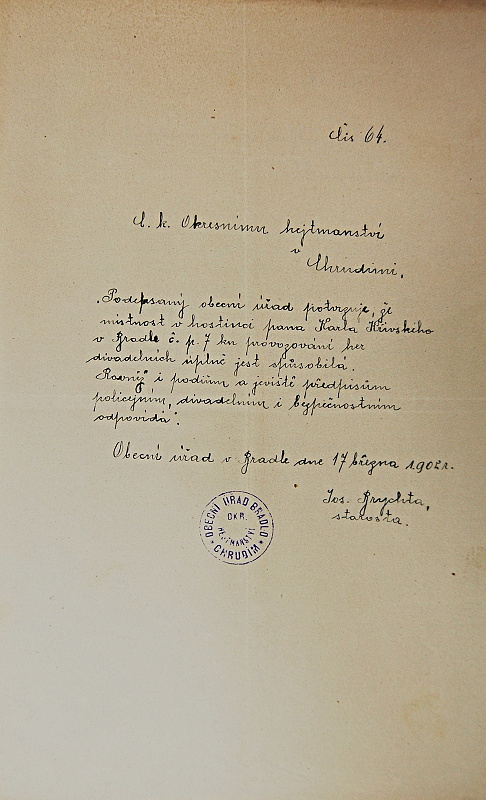 Čís 64.
C. k. Okresnímu hejtmanství
v
Chrudimi.
„Podepsaný obecní úřad potvrzuje, že
místnost v hostinci pana Karla Křivského
v Bradle č. p. 7 ku provozování her
divadelních úplně jest spůsobilá.
Rovněž i podium a jeviště předpisům
policejním, divadelním i bezpečnostním
odpovídá".
Obecní úřad v Bradle dne 17 března 1902.
Jos. Brychta,
starosta.
OBECNÍ ÚŘAD BRADLO
OKR.
HEJTMANSTVÍ
CHRUDIM